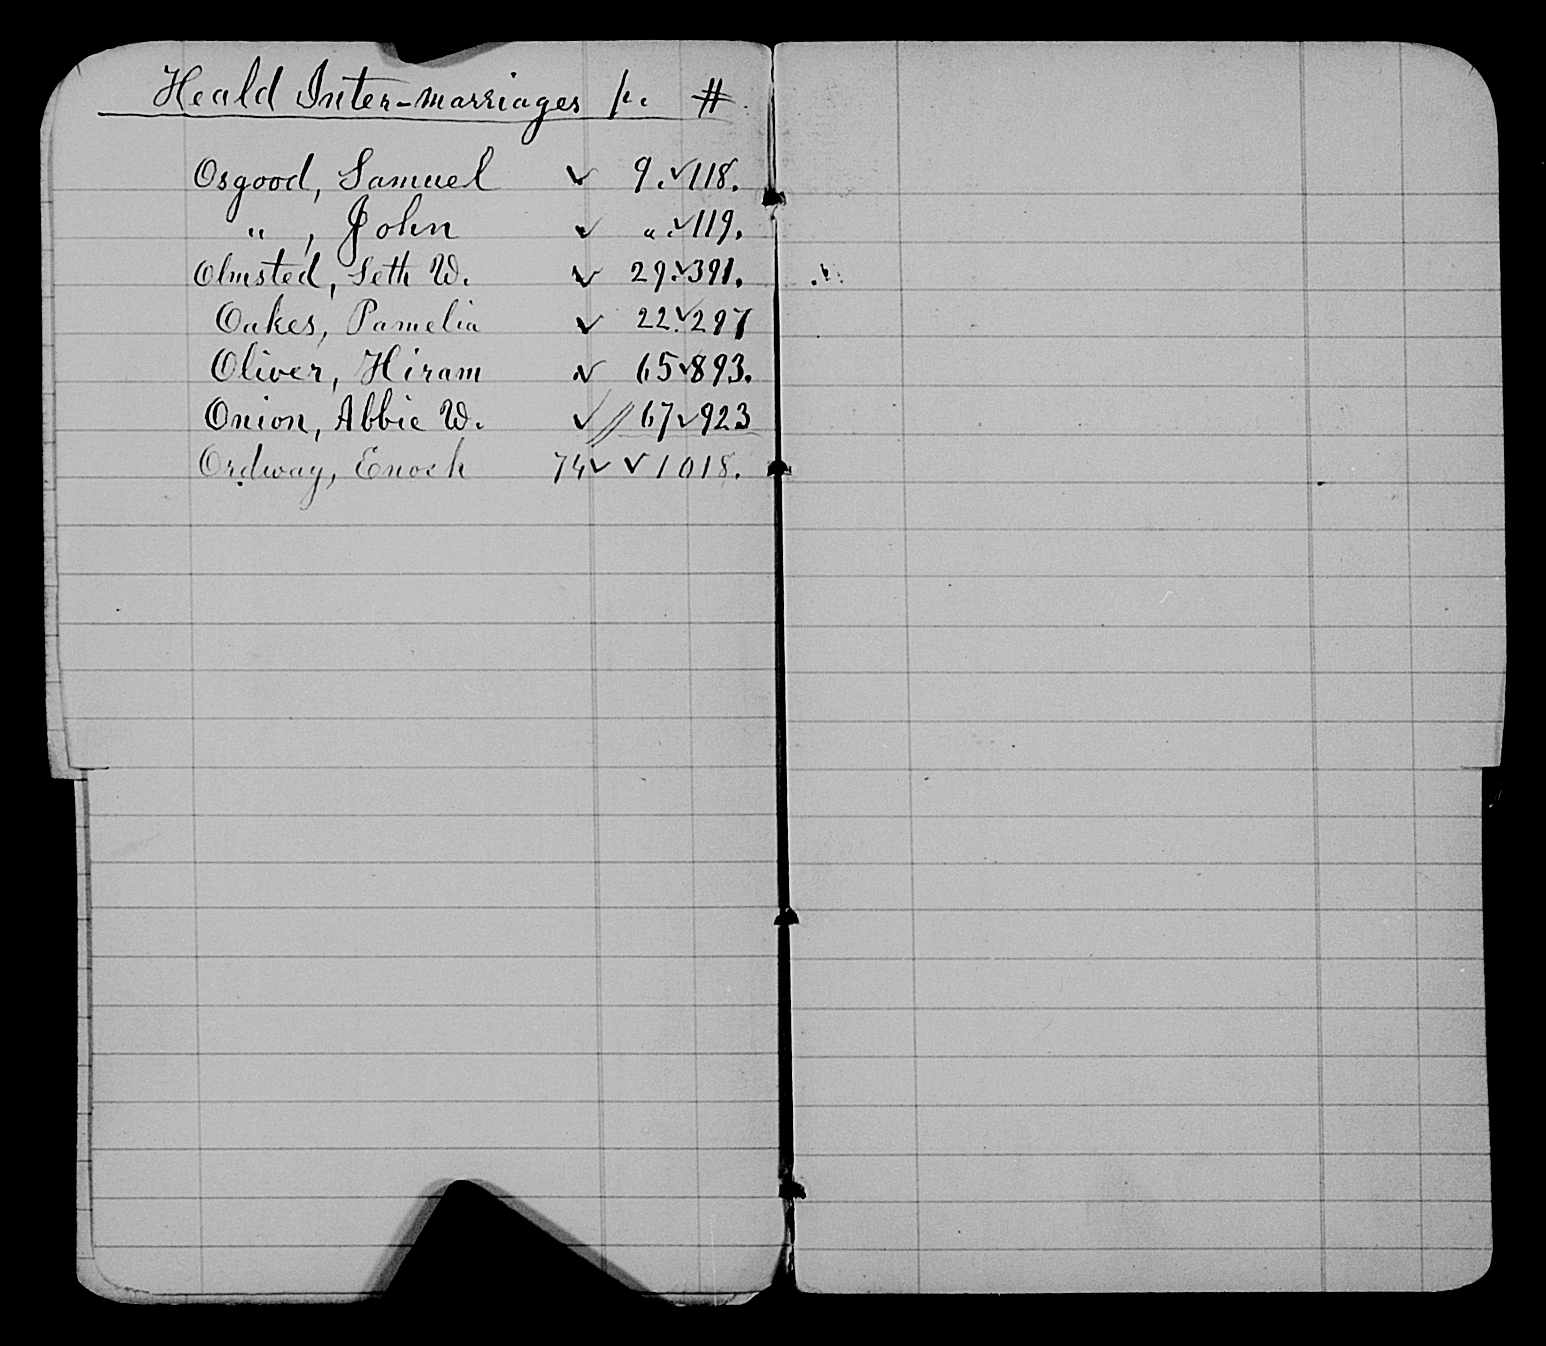 Heald Inter-marriages p. #
Osgood, Samuel ✓ 9. ✓ 118.
" , John ✓ ". ✓ 119.
Olmsted, Seth W. ✓ 29. ✓ 391.
Oakes, Pamelia ✓ 22. ✓ 297
Oliver, Hiram ✓ 65 ✓ 893.
Onion, Abbie W. ✓ // 67 ✓ 923
Ordway, Enoch 74 ✓ ✓ 1018.